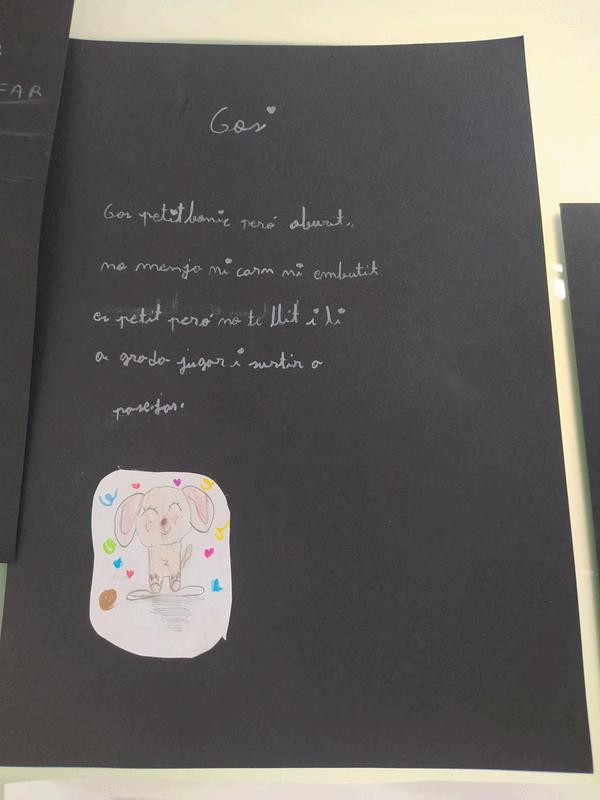 FAR
Gos
Gos petit bonic peró aburit,
no menja ni carn ni embutit
es petit peró no te llit i li
a grada jugar i surtir a
pasejar.